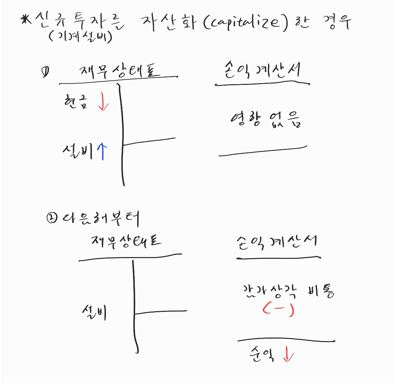 *신규투자를 자산화(capitalize)한 경우
(기계설비)
① 재무상태표 손익계산서
현금 ↓
영향 없음
설비 ↑
② 다음해부터
재무상태표 손익계산서
감가상각 비용
설비 (-)
순익 ↓